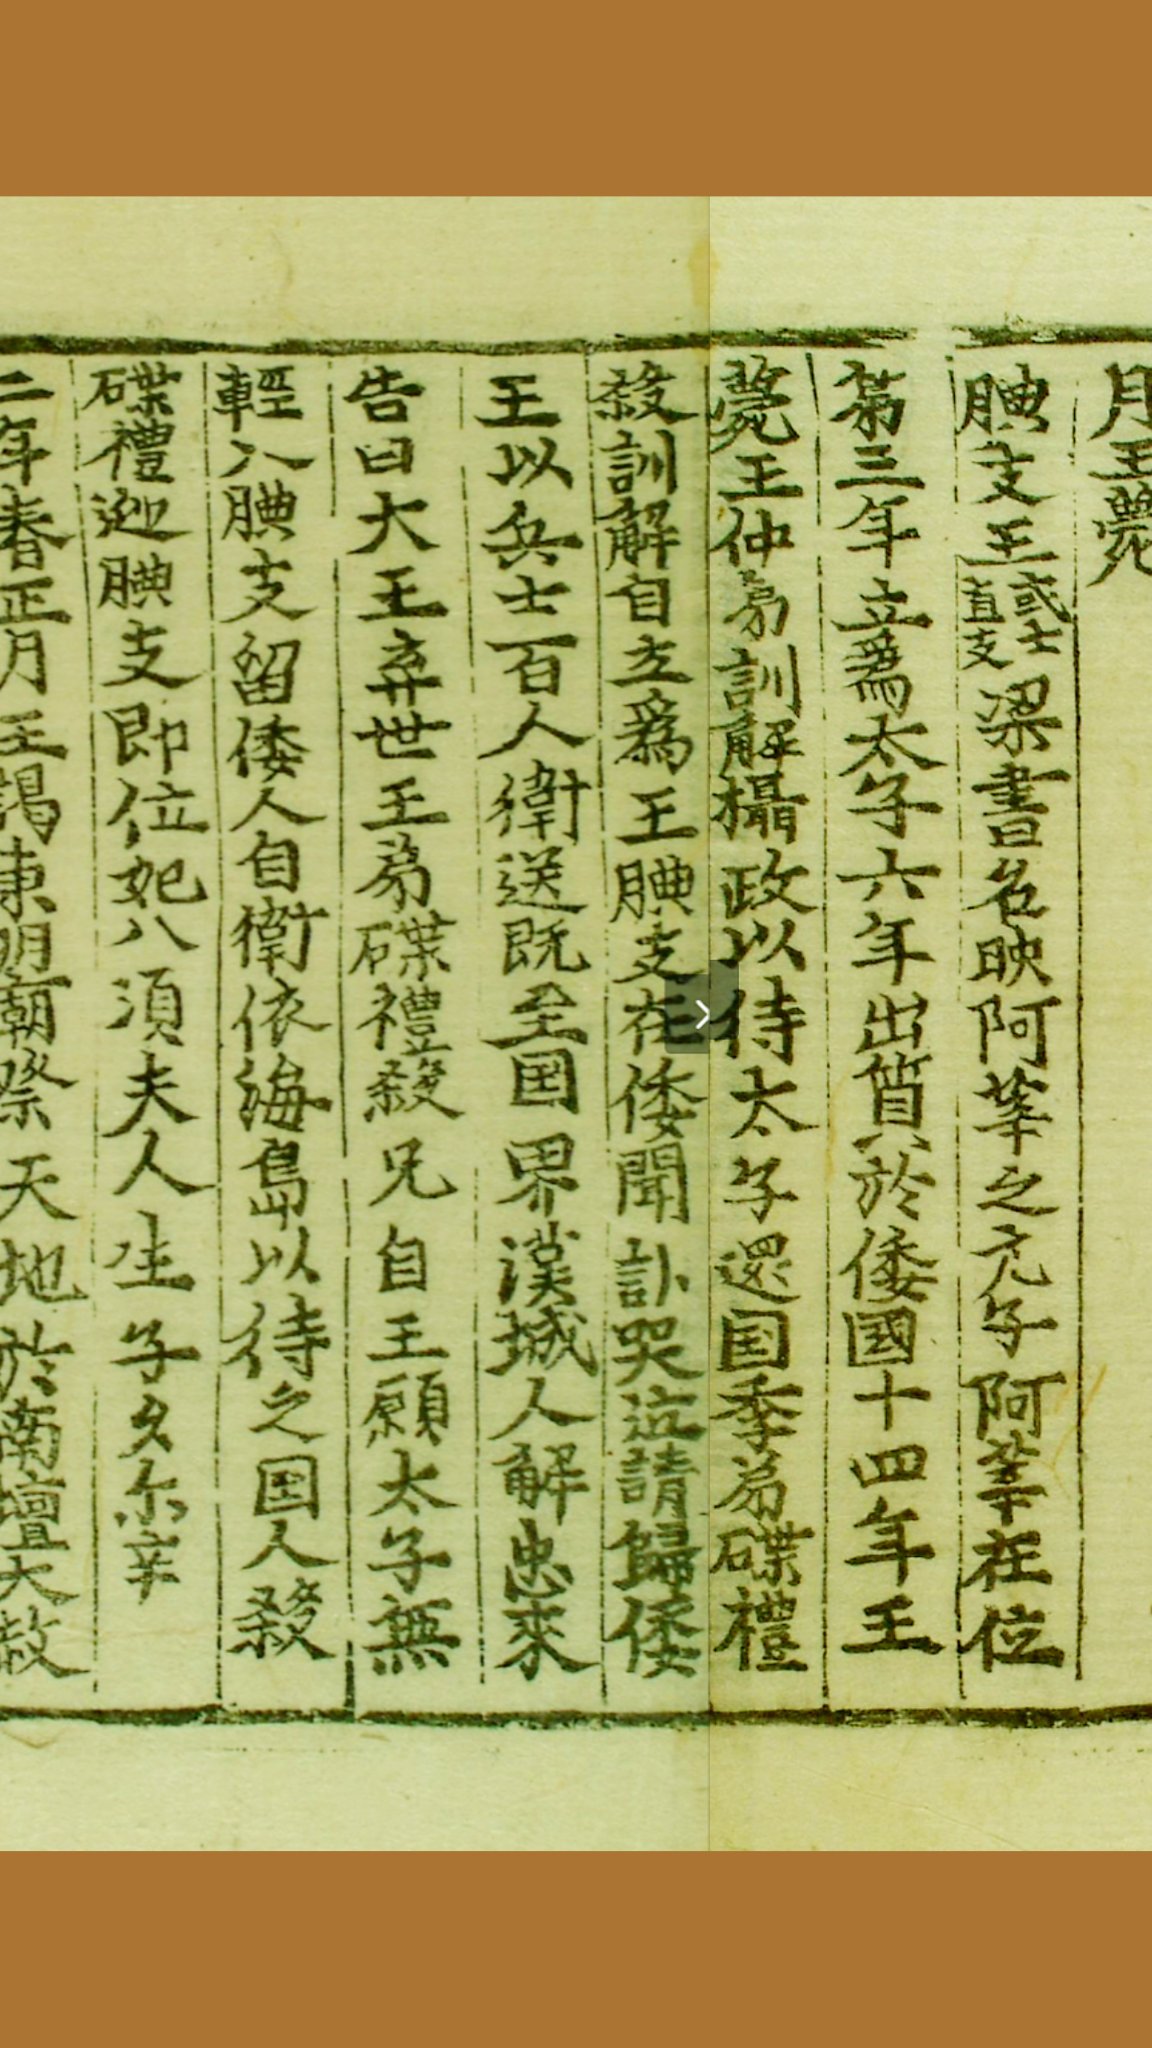 月王薨
腆支王或士直支梁書名映阿莘之元子阿莘在位
第三年立爲太子六年出質於倭國十四年王
薨王仲弟訓解攝政以待太子還国季弟碟禮
殺訓解自立爲王腆支在倭聞訃哭泣請歸倭
王以兵士百人衛送既至国界漢城人解忠來
告曰大王弃世王弟碟禮殺兄自王願太子無
輕入腆支留倭人自衛依海島以待之国人殺
碟禮迎腆支即位妃八湏夫人生子久尔辛
二年春正月王謁東明廟祭天地於南壇大赦